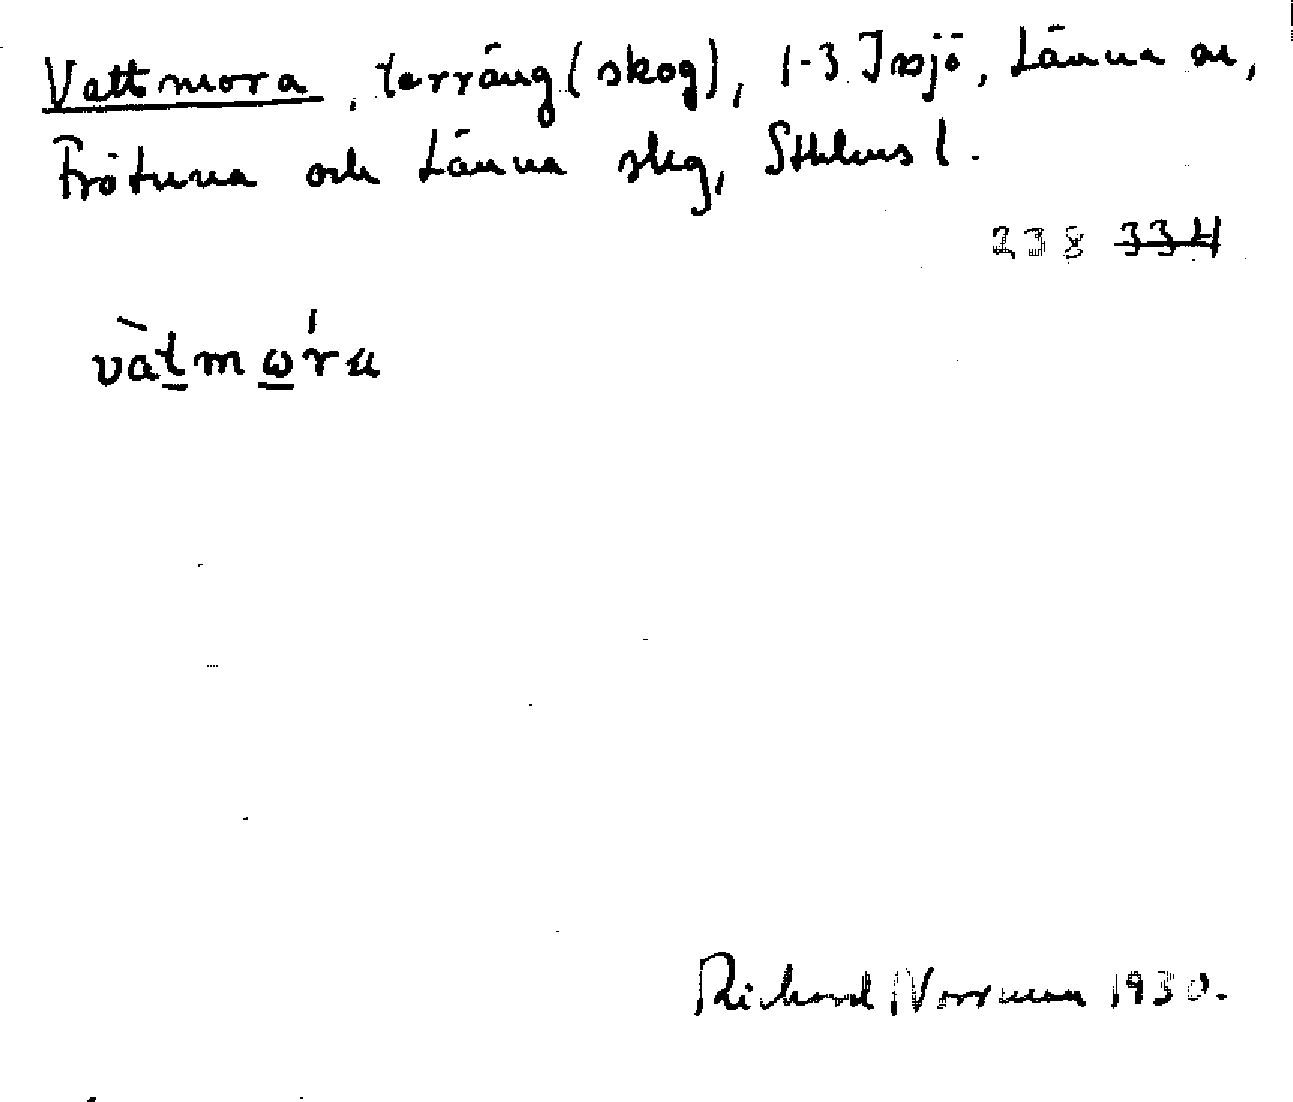 Vattmora, terräng (skog), 1-3 Issjö, Länna sn,
Frötuna och Länna skg, Sthlms l.
238 334
vàt̲mώ̲ra
Richard Norrman 1930.